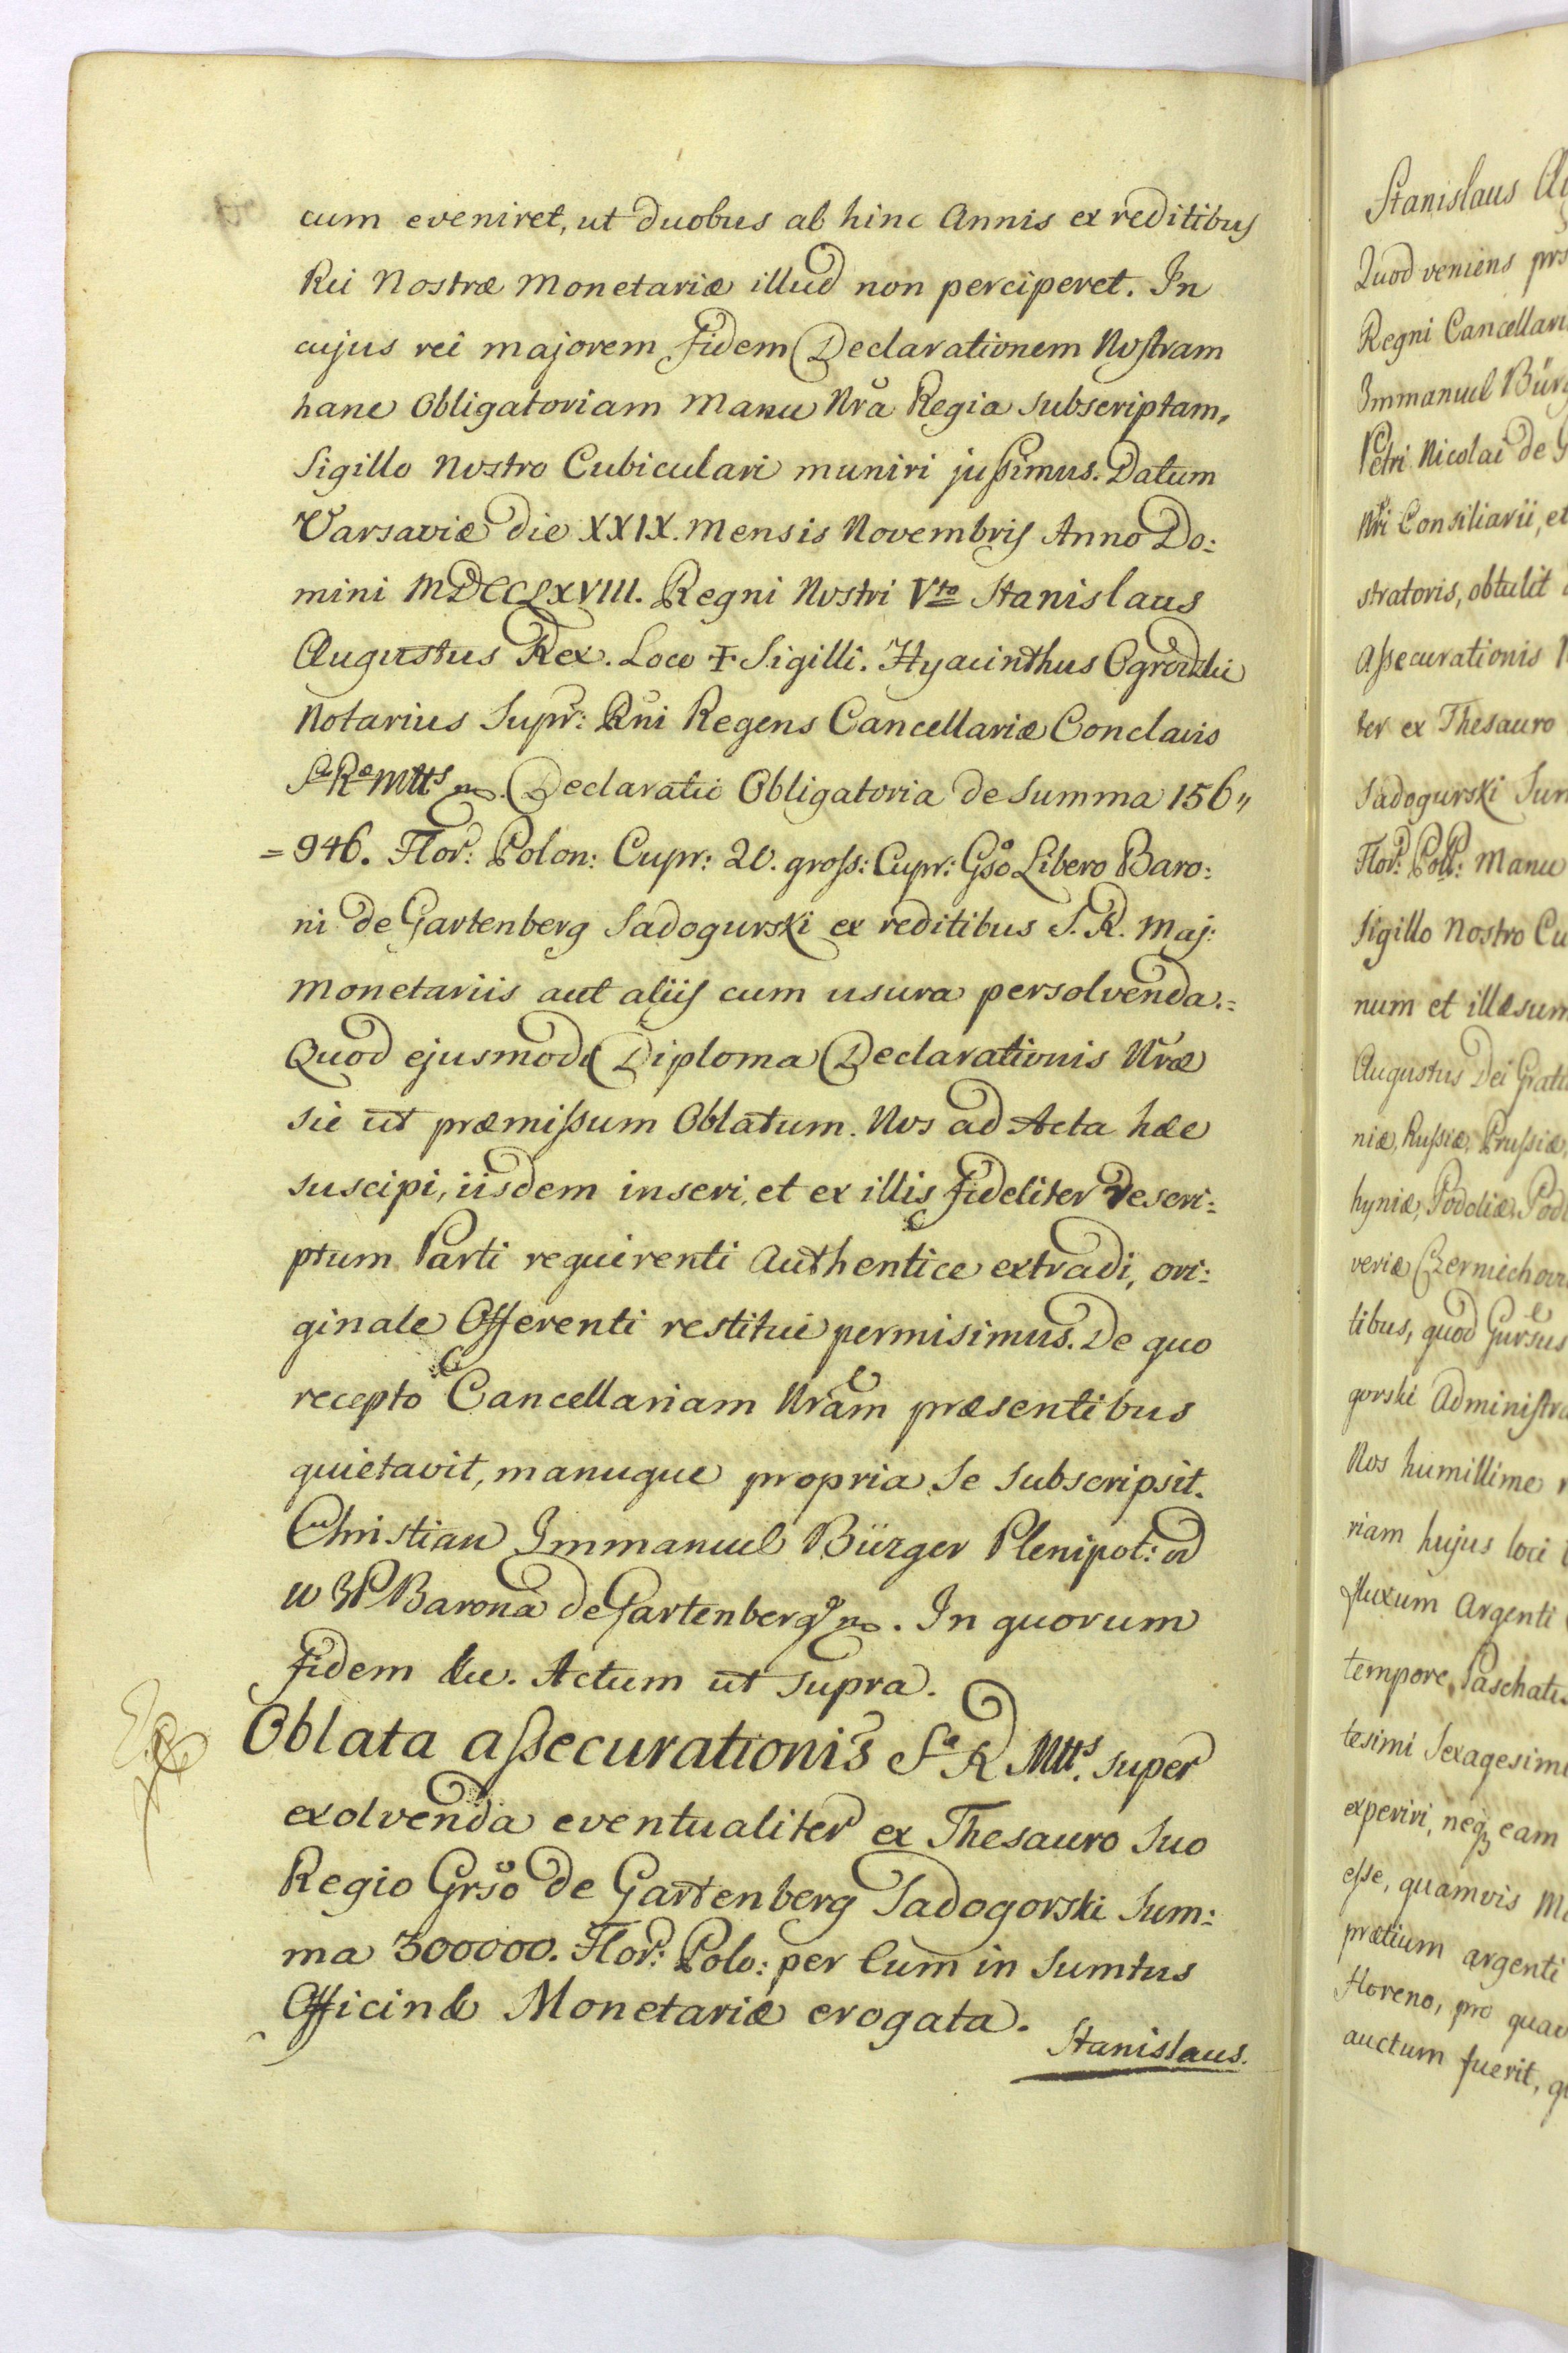 cum eveniret, ut duobus ab hinc Annis ex reditibus
Rei Nostræ Monetariæ illud non perciperet. In
cujus rei majorem fidem Declarationem Nostram
hanc Obligatoriam Manu Nrã Regia subscriptam,
Sigillo Nostro Cubiculari muniri jussimus. Datum
Varsaviæ die XXIX. Mensis Novembris Anno Do:
mini MDCCLXVIII. Regni Nostri Vto Stanislaus
Augustus Rex. Loco ✝ Sigilli. Hyacinthus Ogrodzki
Notarius Supr: Rni Regens Cancellariæ Conclavis
Sæ Ræ Mttis mp. Declaratio Obligatoria de Summa 156"
=946. Flor: Polon: Cupr: 20. gross: Cupr: Gsõ Libero Baro:
ni de Gartenberg Sadogurski ex reditibus S. R. Maj:
Monetariis aut aliis cum usura persolvenda.=
Quod ejusmodi Diploma Declarationis Nræ
sic ut præmissum Oblatum. Nos ad Acta hæc
suscipi, iisdem inseri, et ex illis fideliter descri:
ptum Parti requirenti Authentice extradi, ori:
ginale Offerenti restitui permisimus. De quo
recepto Cancellariam Nram præsentibus
quietavit, manuque propria se subscripsit.
Christian Immanuel Bürger Plenipot: od
W JP Barona de Gartenberg mp. In quorum
fidem &c. Actum ut supra.
Oblata assecurationis Sæ R Mttis super
exolvenda eventualiter ex Thesauro Suo
Regio Grsõ de Gartenberg Sadogorski Sum:
ma 300000. Flor: Polo: per Eum in Sumtus
Officinæ Monetariæ erogata.
Stanislaus.
Stanislaus
Quod veniens
Regni
Immanuel
Petri Nicolai de
Nri Consiliarii, et
stratoris, obtulit
Assecurationis
ter ex Thesauro
Sadogurski
Flor: Poll: Manu
Sigillo Nostro
num et illæsum
Augustus Dei
niæ, Russiæ, Prussiæ,
hyniæ, Podoliæ,
veriæ
tibus, quod
gorski
Nos humillime
riam hujus loci
fluxum Argenti
tempore
tesimi
experiri, neq eam
esse, quamvis
prætium argenti
floreno, pro
auctum fuerit,